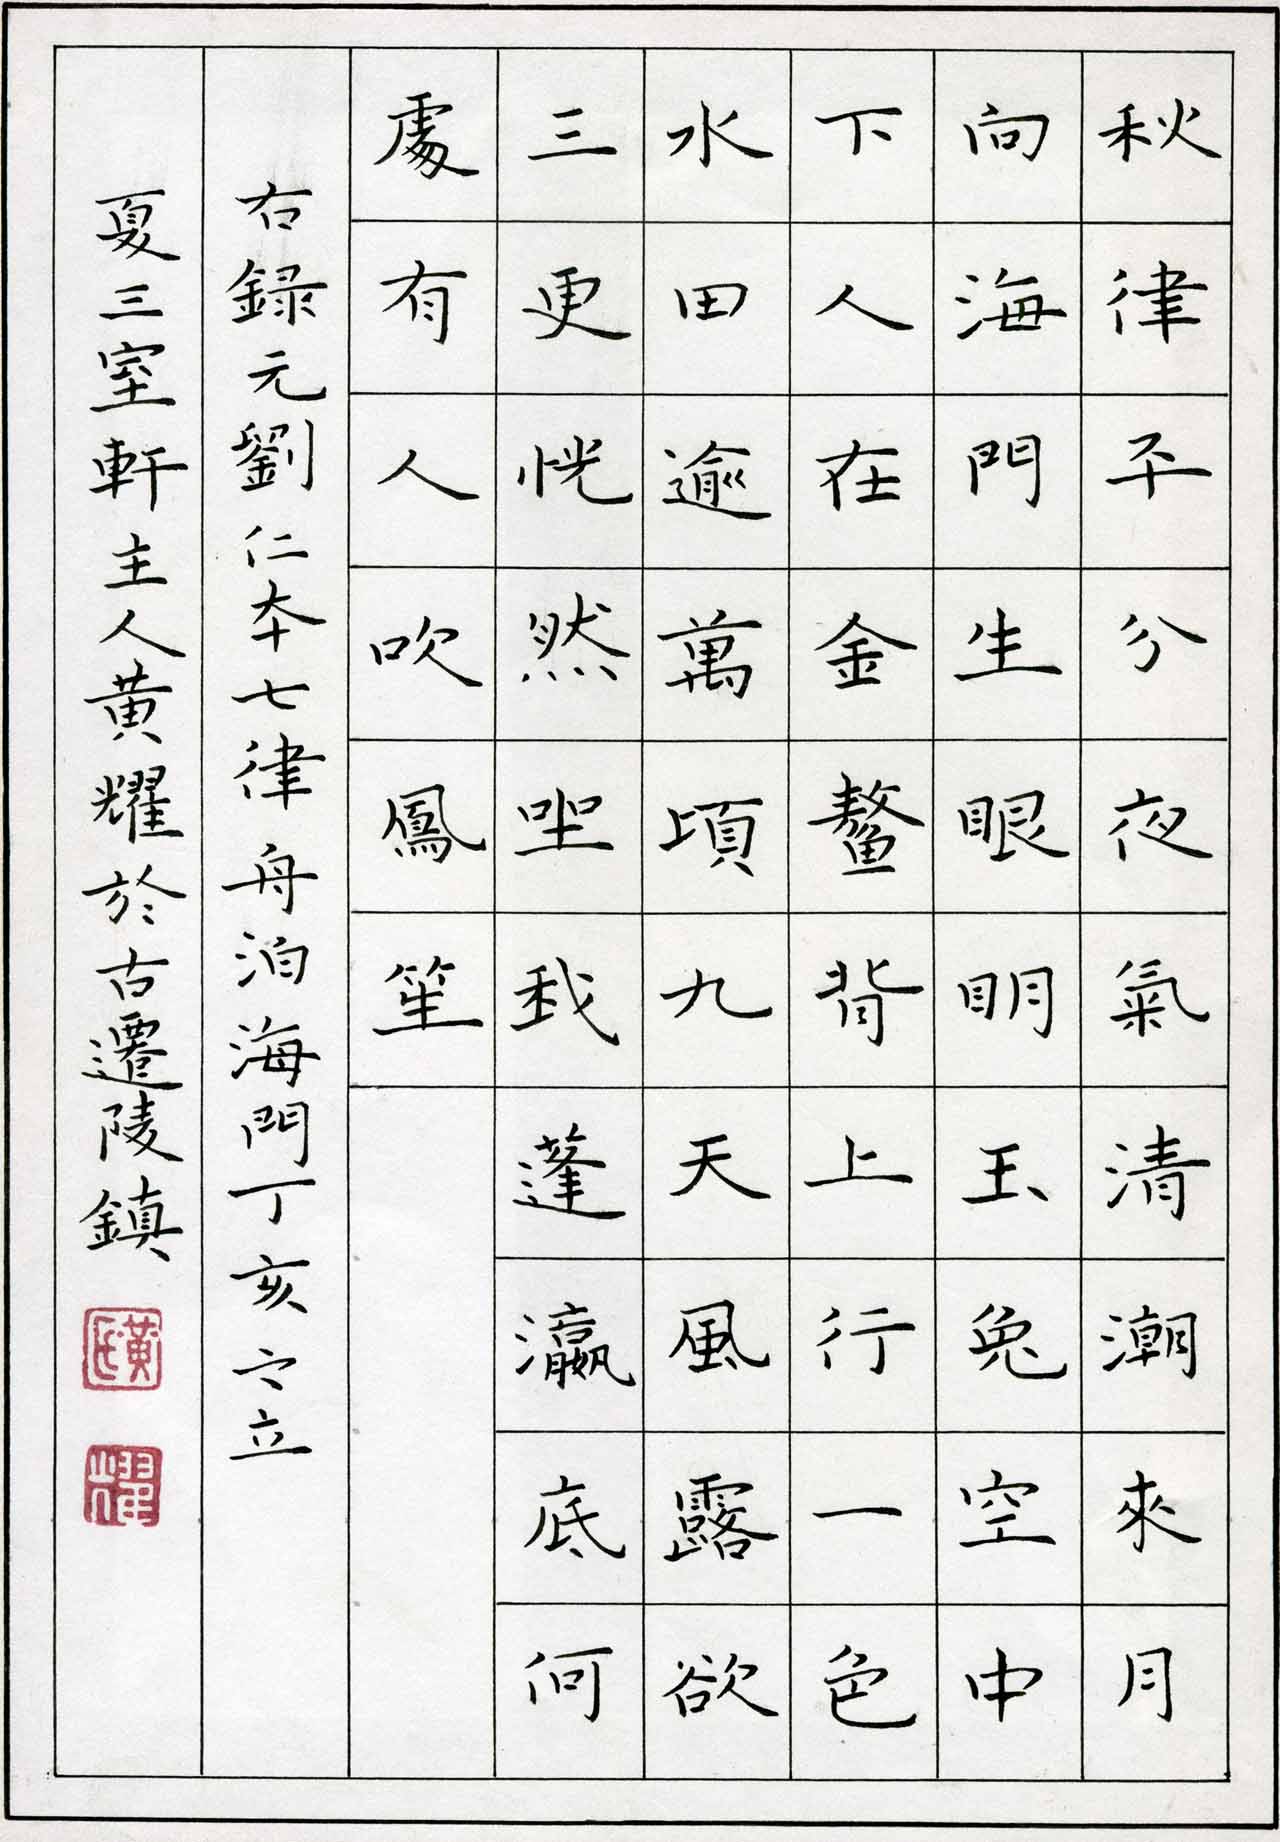 秋律平分夜氣清潮來月
向海門生眼明玉兔空中
下人在金鰲背上行一色
水田逾萬頃九天風露欲
三更恍然坐我蓬瀛底何
處有人吹鳳笙
右録元劉仁本七律舟泊海門丁亥六立
夏三室軒主人黄耀於古遷陵鎮
黄氏
耀